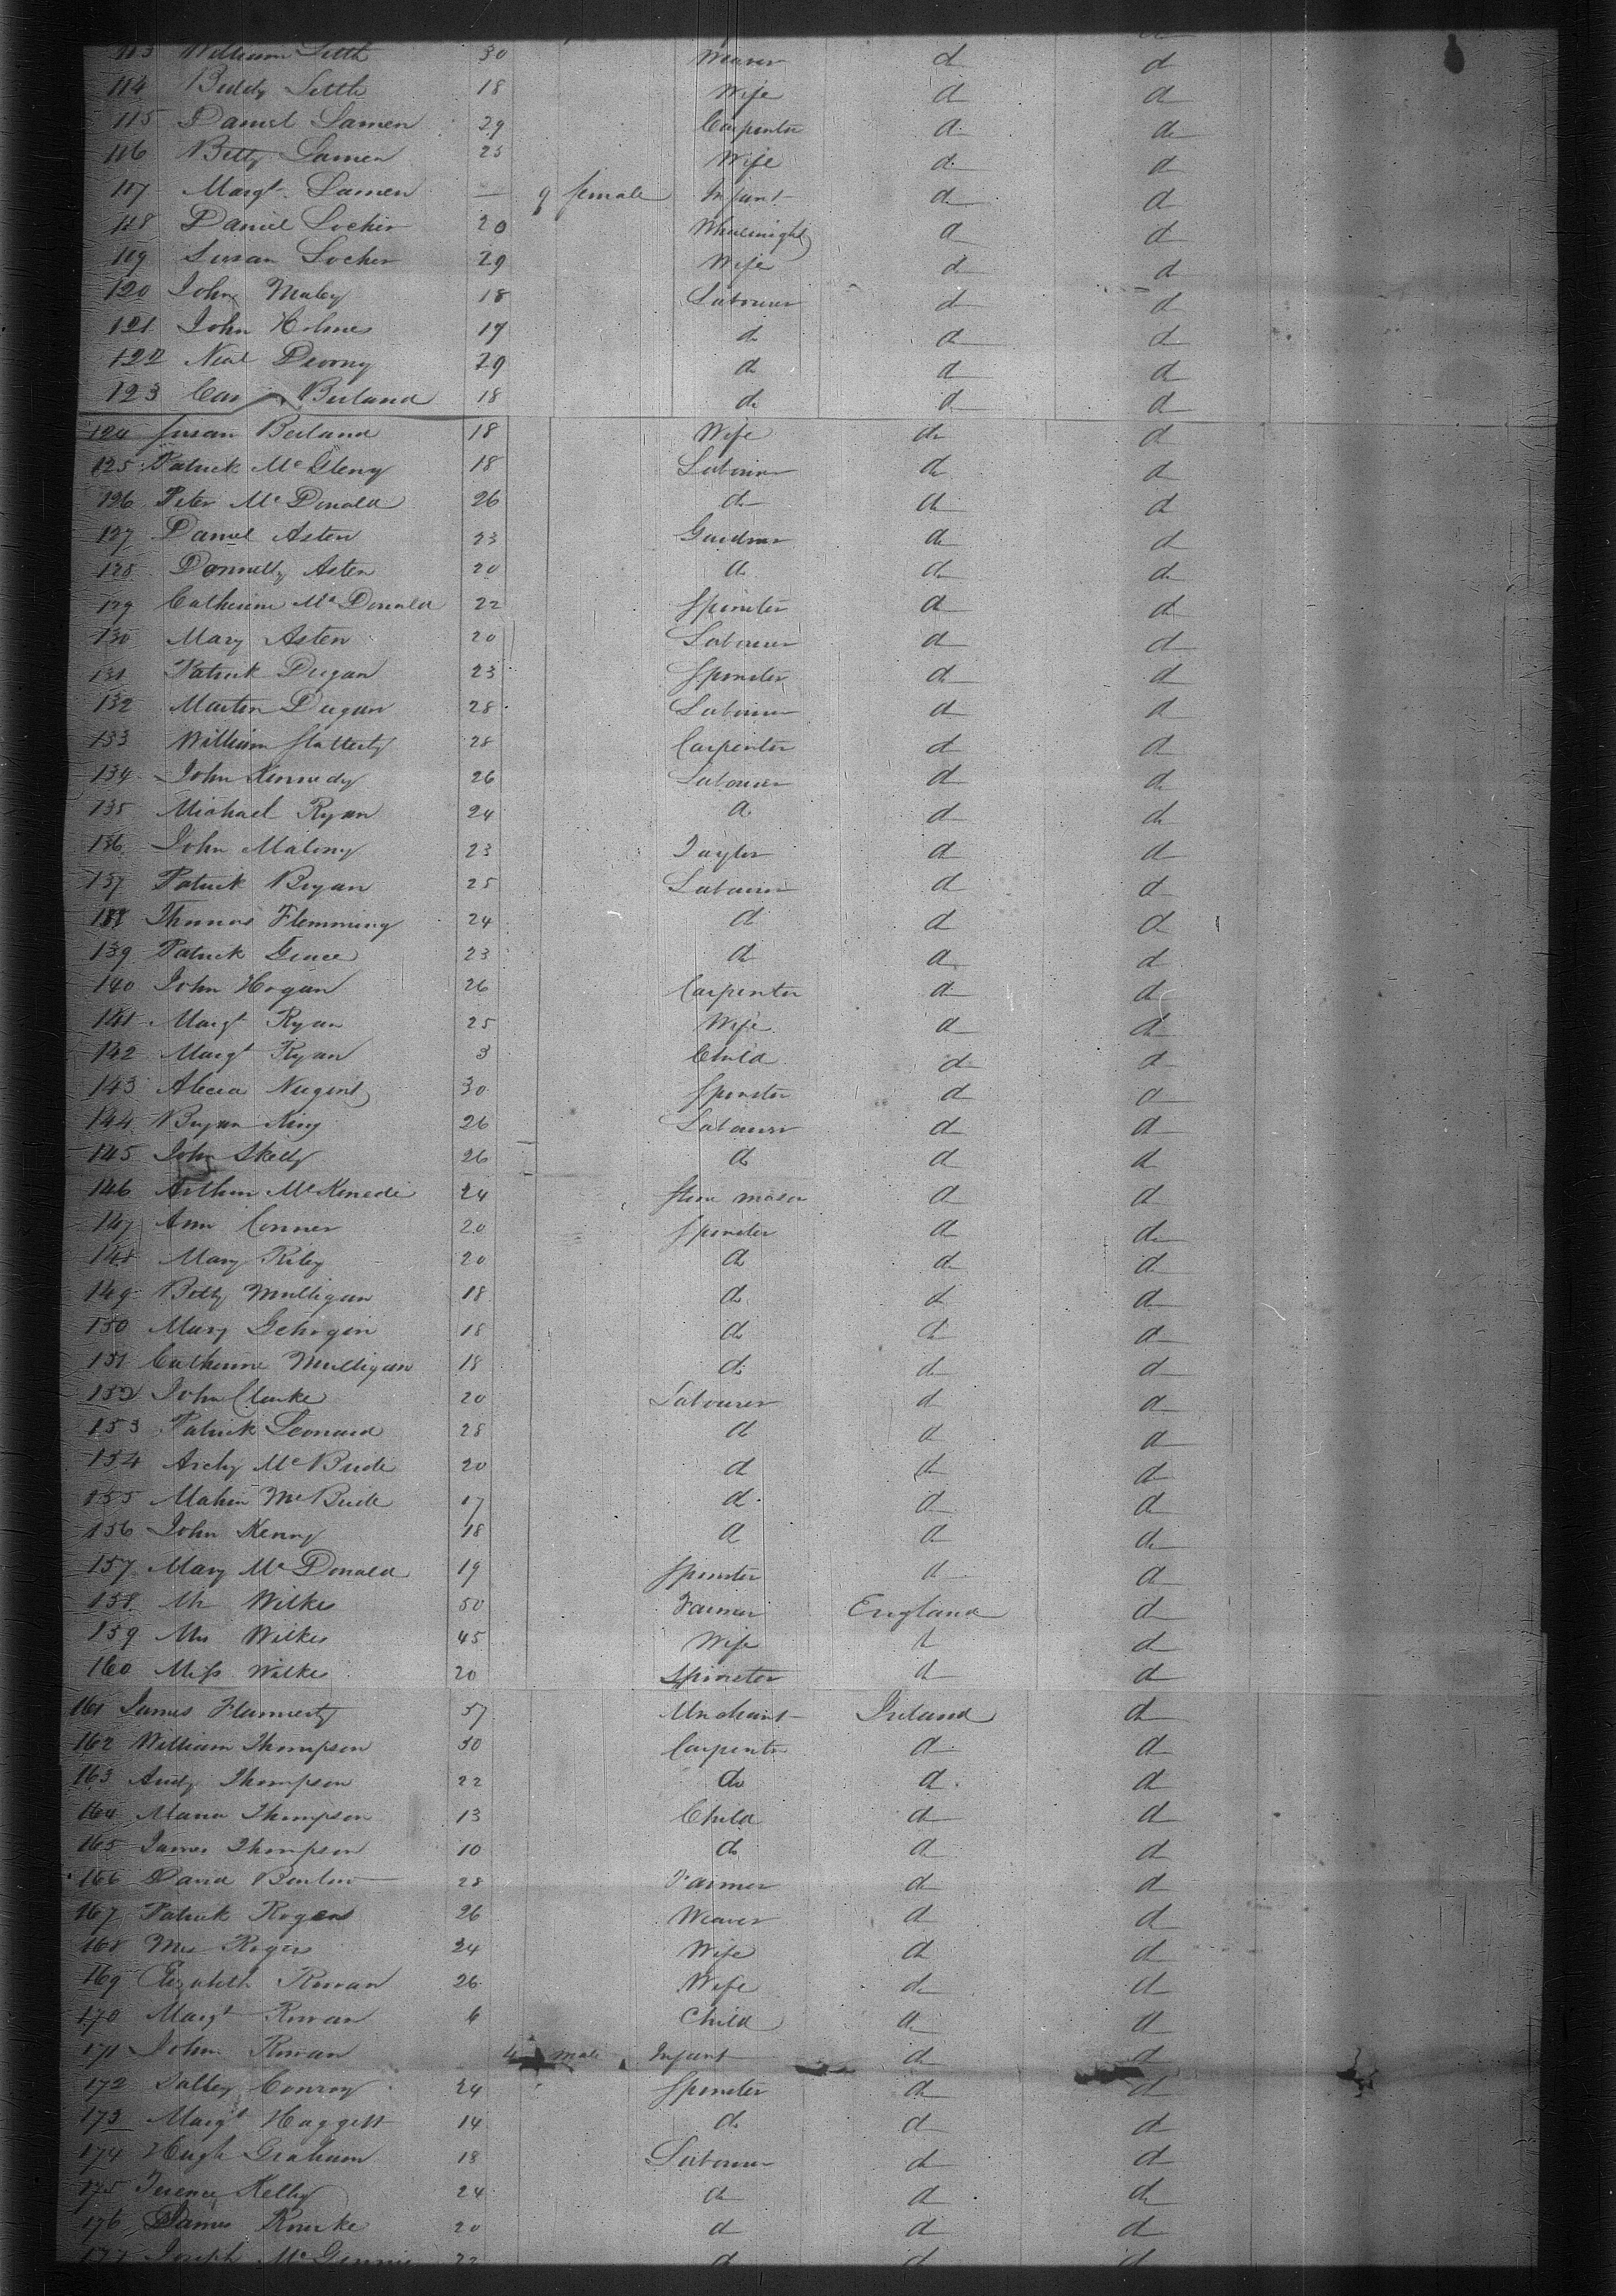 113 William Little 30 Weaver d d
114 Biddy Little 18 Wife d d
115 Daniel Lamen 29 Carpenter d d
116 Betty Lamen 25 Wife d d
117 Margt. Lamen — 9 female Infant d d
118 Daniel Locher 20 d d
119 Susan Locher 29 Wife d d
120 John Maley 18 Labourer d d
121 John Holmes 19 d d d
122 Neal Devony 29 d d d
123 Beiland 18 d d d
124 Susan Beiland 18 Wife d d
125 Patrick 18 Labourer d d
126 Peter McDonald 26 d d d
127 Daniel Asten 23 Gardner d d
128 Donnelly Asten 20 d d d
129 Catherine McDonald 22 Spinster d d
130 Mary Asten 20 Labourer d d
131 Patrick Dugan 23 Spinster d d
132 Martin Dugan 28 Labourer d d
133 William Flatterty 28 Carpenter d d
134 John Kennedy 26 Labourer d d
135 Michael Ryan 24 d d d
136 John Malony 23 Taylor d d
137 Patrick Bryan 25 Labourer d d
138 Thomas Flemming 24 d d d
139 Patrick Grace 23 d d d
140 John Hogan 26 Carpenter d d
141 Margt Ryan 25 Wife d d
142 Margt Ryan 3 Child d d
143 Alecia Nugent 30 Spinster d d
144 Bryan King 26 Labourer d d
145 John Skelly 26 d d d
146 Arthur McKenede 24 Stone mason d d
147 Ann Conner 20 Spinster d d
148 Mary Riley 20 d d d
149 Betty Mulligan 18 d d d
150 Mary Gehogen 18 d d d
151 Catherine Mulligan 18 d d d
152 John Clarke 20 Labourer d d
153 Patrick Leonard 28 d d d
154 Archy McBride 20 d d d
155 McBride 17 d d d
156 John Kenny 18 d d d
157 Mary McDonald 19 Spinster d d
158 Mr Wilkes 50 Farmer England d
159 Mrs Wilkes 45 Wife d d
160 Miss Wilkes 20 Spinster d d
161 James Flannerty 57 Merchant Ireland d
162 William Thompson 30 Carpenter d d
163 Andy Thompson 22 d d d
164 Maria Thompson 13 Child d d
165 James Thompson 10 d d d
166 David 28 Farmer d d
167 Patrick Rogers 26 Weaver d d
168 Mrs Rogers 24 Wife d d
169 Elizabeth Rowan 26 Wife d d
170 Margt Rowan 6 Child d d
171 John Rowan 4 male Infant d d
172 Salley Conroy 24 Spinster d d
173 Margt Haggett 14 d d d
174 Hugh Graham 18 Labourer d d
175 Terence Kelly 24 d d d
176 James Rourke 20 d d d
177 Joseph 22 d d d